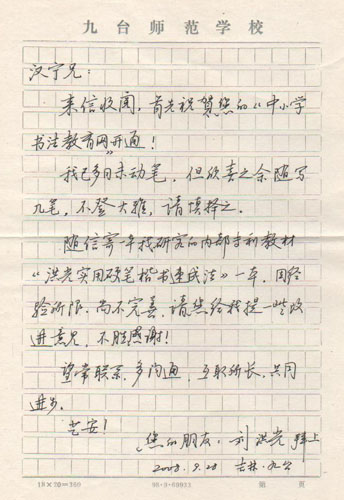 九台师范学校
汉宁兄:
来信收阅,首先祝贺您的“中小学
书法教育网”开通!
我已多日未动笔,但欣喜之余随写
几笔,不登大雅,请慎择之。
随信寄一本我研究的内部专利教材
“洪光实用硬笔楷书速成法》一本,因经
验所限,尚不完善,请您给我提一些改
进意见,不胜感谢!
望常联系,多沟通,互取所长,共同
进步。
艺安!
您的朋友:刘洪光 拜上
2008.9.28 吉林·九台
18×20=360
第 页